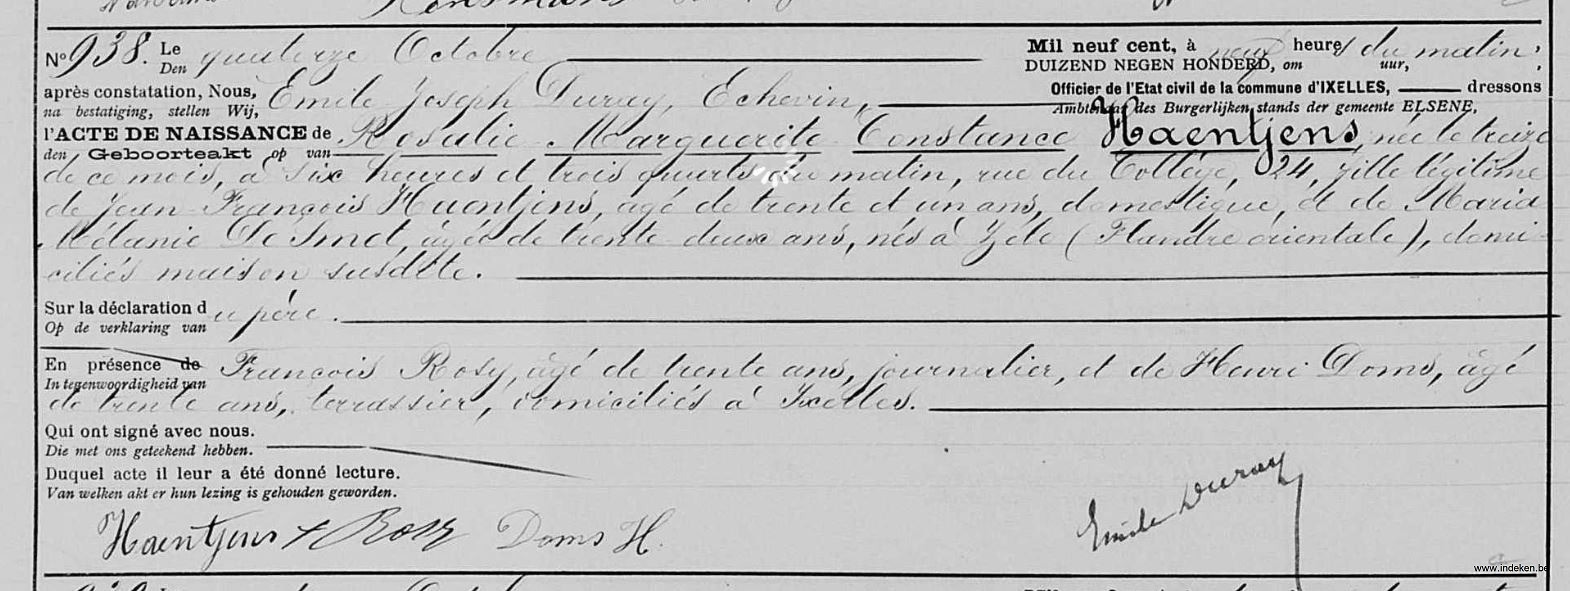 N° 938. Le quatorze Octobre Mil neuf cent, à neuf heures du matin,
Den DUIZEND NEGEN HONDERD, om uur,
après constatation, Nous, Emile Joseph Duray, Echevin, Officier de l'Etat civil de la commune d'IXELLES, dressons
na bestatiging, stellen Wij, Ambtenaar des Burgerlijken stands der gemeente ELSENE,
l'ACTE DE NAISSANCE de Rosalie Marguerite Constance Haentjens, née le treize
den Geboorteakt op van
de ce mois, à six heures et trois quarts du matin, rue du Collège, 24, fille légitime
de Jean François Haentjens, agé de trente et un ans, domestique, et de Maria
Mélanie De Smet, agée de trente deux ans, nés à Zele (Flandre orientale), domi-
ciliés maison susdite.
Sur la déclaration du père.
Op de verklaring van
En présence de François Rosy, âgé de trente ans, journalier, et de Henri Doms, âgé
In tegenwoordigheid van
de trente ans, terrassier, domiciliés à Ixelles.
Qui ont signé avec nous.
Die met ons geteekend hebben.
Duquel acte il leur a été donné lecture.
Van welken akt er hun lezing is gehouden geworden.
Emile Duray
Haentjens f Rosy Doms H.
www.indeken.be